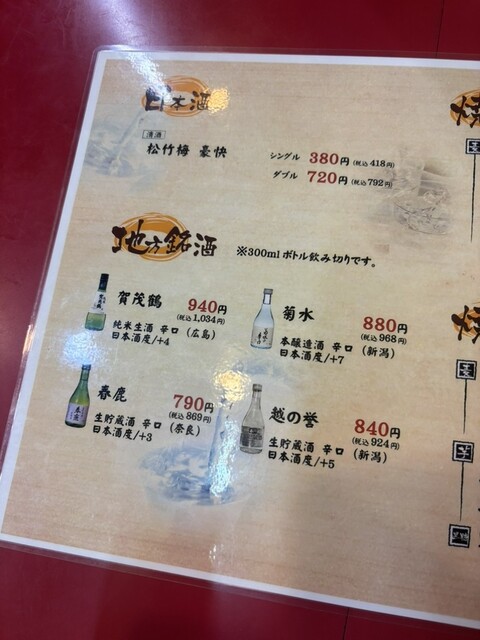 日本酒
清酒
松竹梅 豪快
シングル 380円 (税込 418円)
ダブル 720円 (税込 792円)
地方銘酒 ※300ml ボトル飲み切りです。
賀茂鶴 940円
(税込 1,034円)
純米生酒 辛口 (広島)
日本酒度/+4
菊水 880円
(税込 968円)
本醸造酒 辛口 (新潟)
日本酒度/+7
春鹿 790円
(税込 869円)
生貯蔵酒 辛口 (奈良)
日本酒度/+3
越の誉 840円
(税込 924円)
生貯蔵酒 辛口 (新潟)
日本酒度/+5
焼
麦
焼
麦
芋